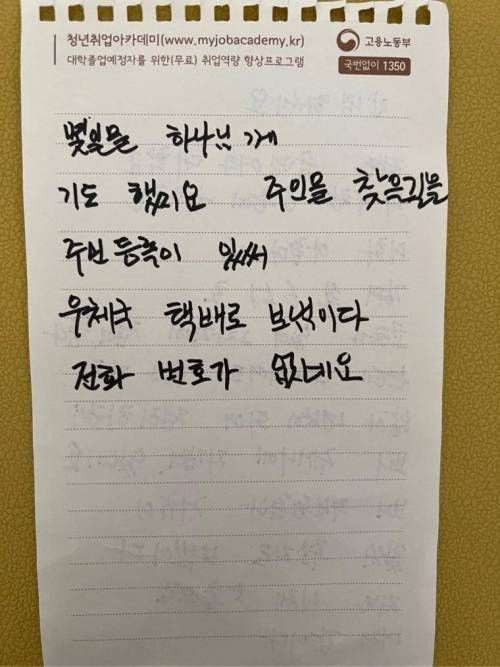 청년취업아카데미(www.myjobacademy.kr)
대학졸업예정자를 위한(무료) 취업역량 향상프로그램
고용노동부
국번없이 1350
몇일믈 하나님 게
기도 했미요 주인믈 찾은길믈
주번등록이 있써
우체국 택배로 보넊이다
전화 번호가 없네요